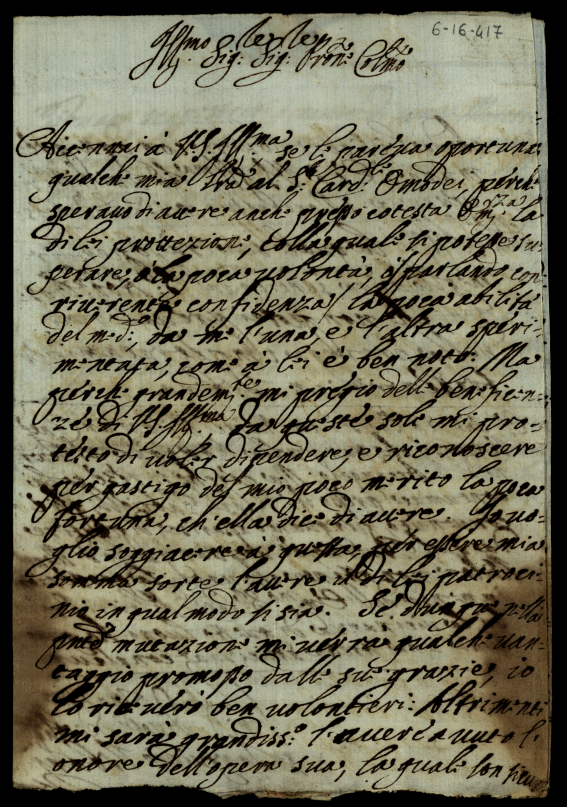 6-16-417
Illmo
Sig: Sig: Pron: Colmo
Accennai à V.S. Illma se le pareva oportuna
qualche mia al S. Card. Omodei, perche
speravo di avere anche presso cotesta la
di lei prottezione, colla quale si potesse su-
perare, ò la poca volontà, ò /parlando con
riverente confidenza/ la poca abilità
del med:º, da me l'una, e l'altra speri-
mentata, come à lei è ben noto. Ma
perche grandemte mi pregio delle beneficen-
ze di V.S. Illma Da queste sole mi pro-
testo di voler dipendere, e riconoscere
per gastigo del mio poco merito la poca
fortuna, ch'ella dice di avere Io vo-
glio soggiacere à questa, per essere mia
somma sorte l'avere il di lei patroci-
nio in qual modo si sia. Se dunque nella
mutazione mi verrà qualche van-
taggio promosso dalle sue grazzie, io
lo riceverò ben volontieri: Altrimenti
mi sarà grandissº l'avere avuto l'
onore dell'opera sua, la quale son sicuro